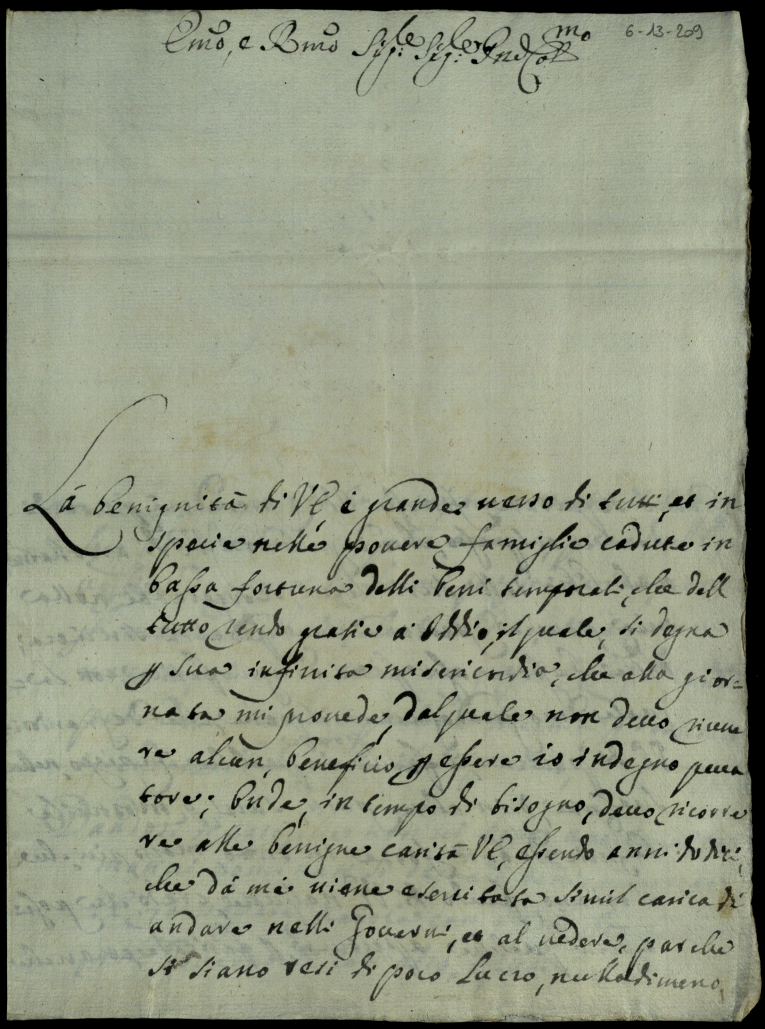 6-13-209
Emo, e Rmo Sigre Sigre Pne Colmo
La benignità di VE è grande, uerso di tutti, et in
specie nelle pouere famiglie cadute in
bassa fortuna delli beni temporali, che dell
tutto rendo gratie à Iddio, il quale, si degna
p sua infinita misericordia, che alla gior=
nata mi prouede, dal quale non deuo riceue
re alcun, beneficio p essere io indegno pecca
tore; Onde, in tempo di bisogno, deuo ricorre
re alle benigne carità VE, essendo anni dodici,
che dà me uiene esercitata simil carica di
andare nelli Gouerni, et al uedere, par che
si siano resi di poco Lucro, nulladimeno,